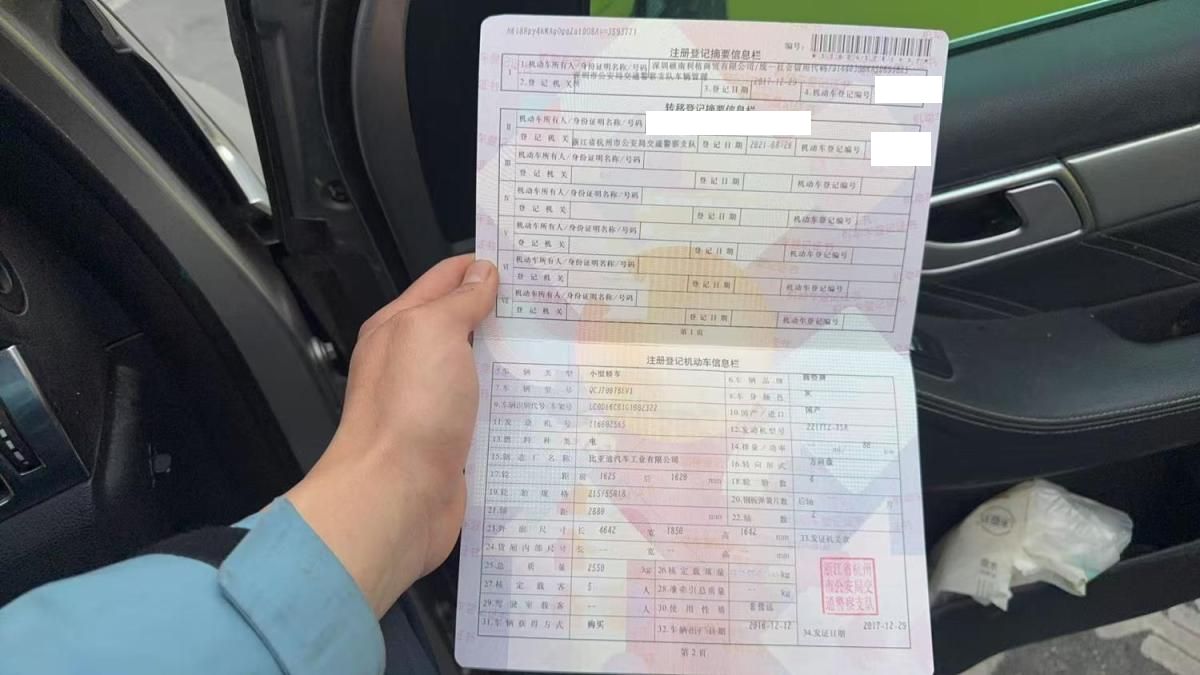 注册登记摘要信息栏
编号:
I
1.机动车所有人/身份证明名称/号码
2.登记机关 深圳市公安局交通警察支队车辆管理所
3.登记日期 2017-12-29
4.机动车登记编号
转移登记摘要信息栏
II
机动车所有人/身份证明名称/号码
登记机关 浙江省杭州市公安局交通警察支队
登记日期 2021-08-26
机动车登记编号
III
机动车所有人/身份证明名称/号码
登记机关
登记日期
机动车登记编号
IV
机动车所有人/身份证明名称/号码
登记机关
登记日期
机动车登记编号
V
机动车所有人/身份证明名称/号码
登记机关
登记日期
机动车登记编号
VI
机动车所有人/身份证明名称/号码
登记机关
登记日期
机动车登记编号
VII
机动车所有人/身份证明名称/号码
登记机关
登记日期
机动车登记编号
第1页
注册登记机动车信息栏
5.车辆类型 小型轿车
6.车辆品牌
7.车辆型号
8.车身颜色 灰
9.车辆识别代号/车架号
10.国产/进口 国产
11.发动机号
12.发动机型号
13.燃料种类 电
14.排量/功率 ml
15.制造厂名称 比亚迪汽车工业有限公司
16.转向形式 方向盘
17.轮距 前 1625 后 1620 mm
18.轮胎数 4
19.轮胎规格
20.钢板弹簧片数 后轴
21.轴距 mm
22.轴数 2
23.外廓尺寸 长 4642 宽 1850 高 1642 mm
33.发证机关章
24.货厢内部尺寸 长 -- 宽 -- 高 -- mm
25.总质量 2550 kg
26.核定载质量 kg
27.核定载客 5 人
28.准牵引总质量 -- kg
29.驾驶室载客 -- 人
30.使用性质
31.车辆获得方式 购买
32.车辆出厂日期 2016-12-12
34.发证日期 2017-12-29
浙江省杭州
市公安局交
通警察支队
第2页